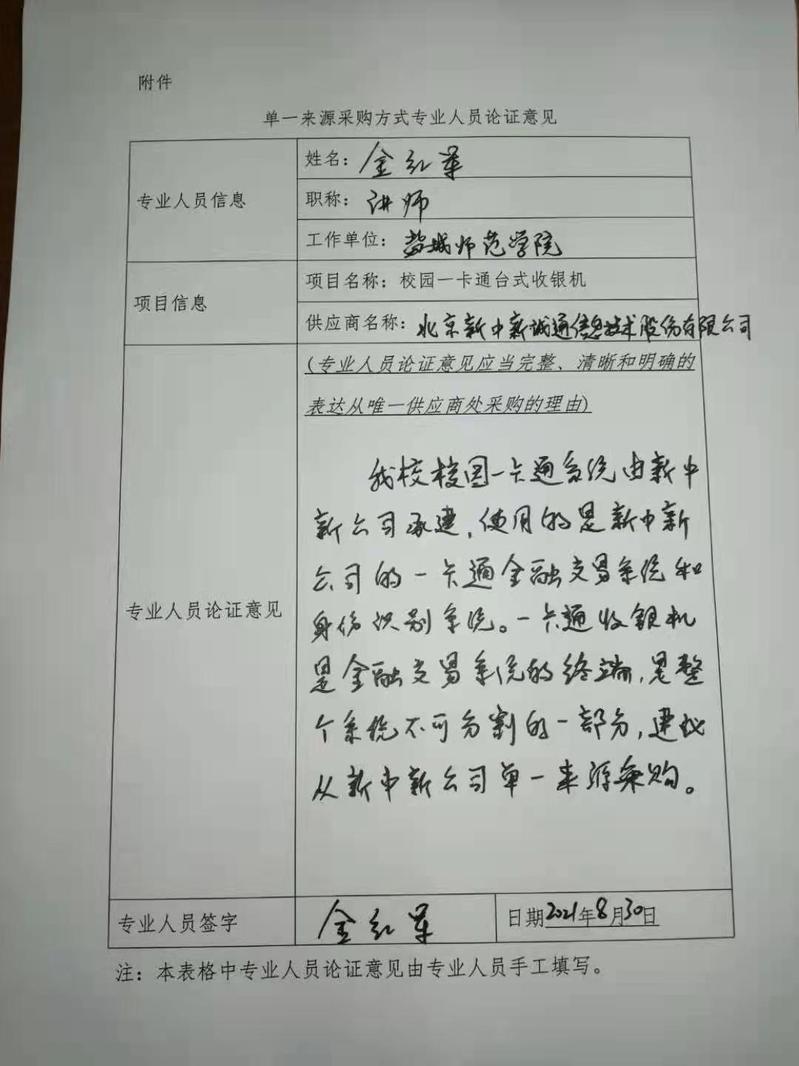 附件
单一来源采购方式专业人员论证意见
专业人员信息
姓名：金红军
职称：讲师
工作单位：盐城师范学院
项目信息
项目名称：校园一卡通台式收银机
供应商名称：北京新中新诚通信息技术股份有限公司
专业人员论证意见
(专业人员论证意见应当完整、清晰和明确的
表达从唯一供应商处采购的理由)
我校校园一卡通系统由新中
新公司承建，使用的是新中新
公司的一卡通金融交易系统和
身份识别系统。一卡通收银机
是金融交易系统的终端，是整
个系统不可分割的一部分，建议
从新中新公司单一来源采购。
专业人员签字
金红军
日期2021年8月30日
注：本表格中专业人员论证意见由专业人员手工填写。